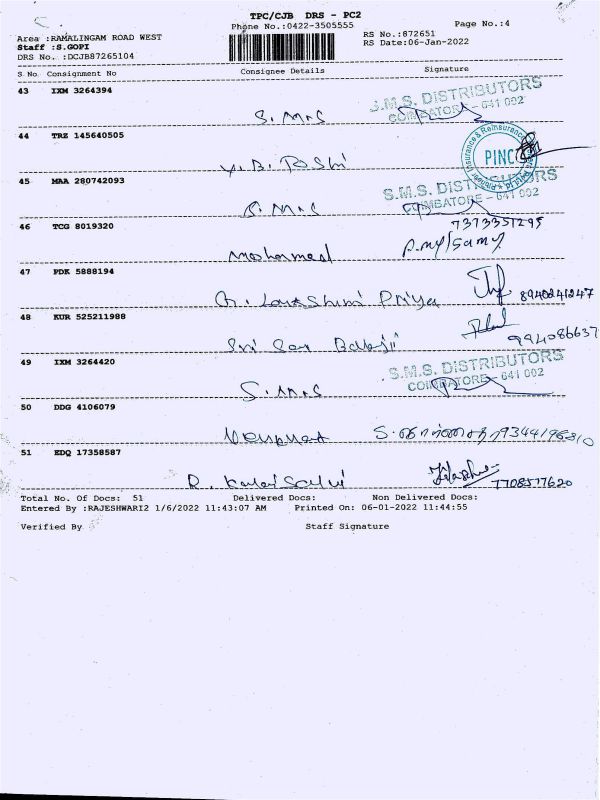 TPC/CJB DRS - PC2
Phone No.:0422-3505555
Page No.:4
Area :RAMALINGAM ROAD WEST
RS No.:872651
Staff :S.GOPI
RS Date:06-Jan-2022
DRS No. :DCJB87265104
S.No Consignment No Consignee Details Signature
43 IXM 3264394
S.M.S S.M.S. DISTRIBUTORS
COIMBATORE - 641 002
44 TRZ 145640505
PINC
Insurance & Reinsurance
45 MAA 280742093
S.M.S. DISTRIBUTORS
S.M.S COIMBATORE - 641 002
46 TCG 8019320
7373351295
Mohammed
47 PDK 5888194
Lakshmi Priya 8940241247
48 KUR 525211988
Sri Sai Balaji 994086637
49 IXM 3264420
S.M.S. DISTRIBUTORS
S.M.S COIMBATORE - 641 002
50 DDG 4106079
9344196810
51 EDQ 17358587
R. Kalai Selvi 7708577620
Total No. Of Docs: 51 Delivered Docs: Non Delivered Docs:
Entered By :RAJESHWARI2 1/6/2022 11:43:07 AM Printed On: 06-01-2022 11:44:55
Verified By Staff Signature